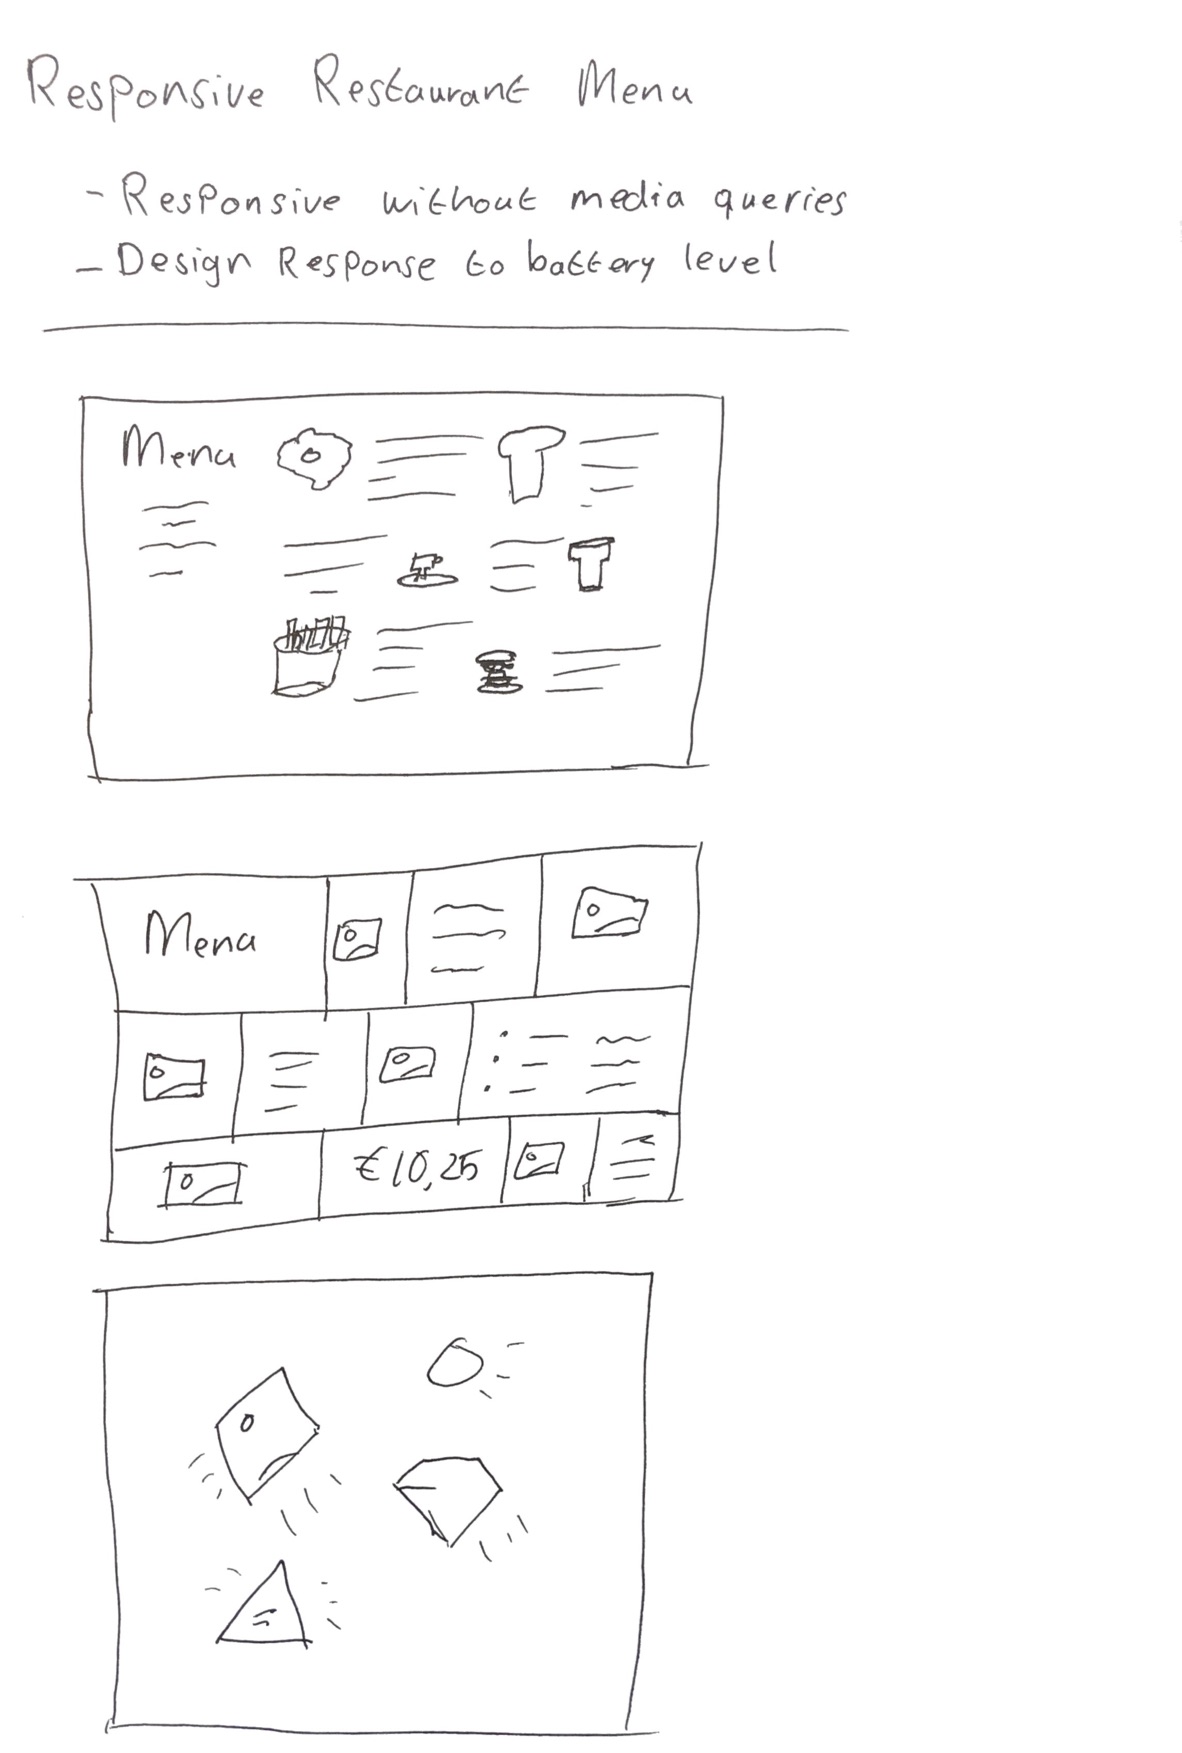 Responsive Restaurant Menu
- Responsive without media queries
- Design Response to battery level
Menu
Menu
€10,25